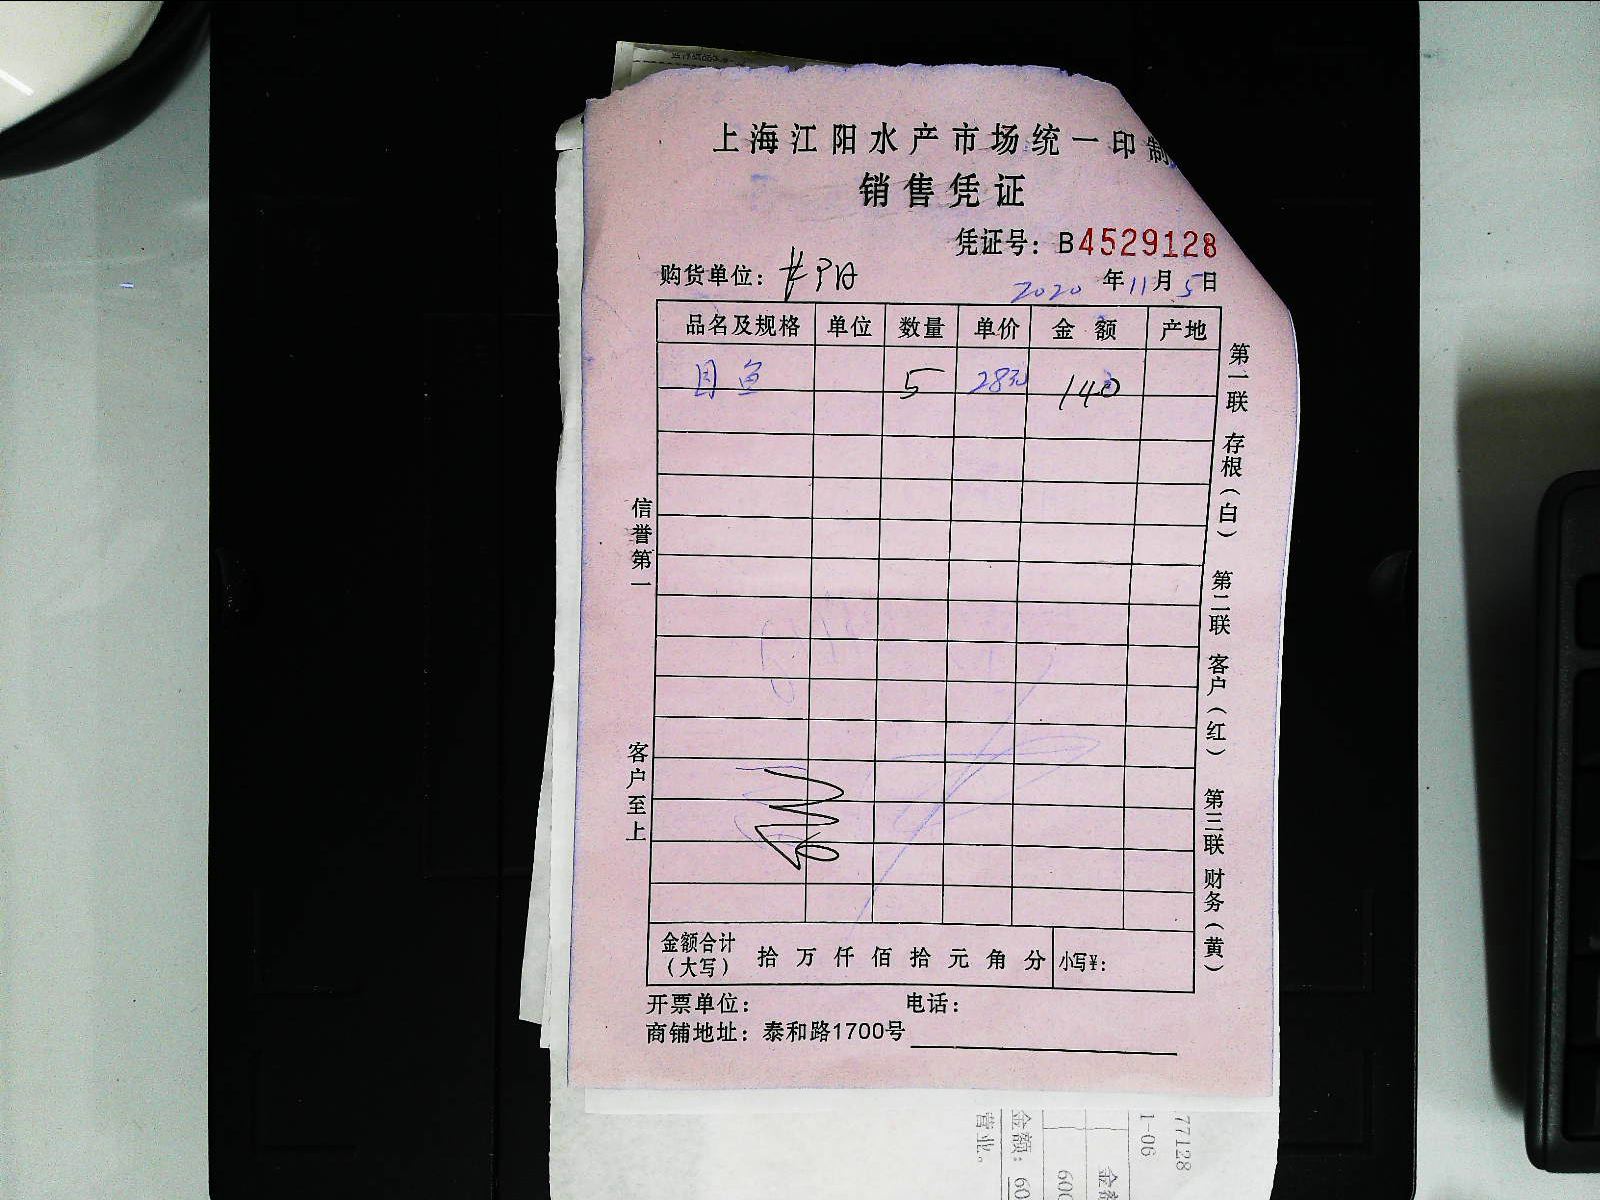 上海江阳水产市场统一印制
销售凭证
凭证号：B4529128
购货单位：
2020年11月5日
品名及规格 单位 数量 单价 金额 产地
目鱼 5 28元 140
信誉第一
客户至上
第一联 存根（白） 第二联 客户（红） 第三联 财务（黄）
金额合计（大写） 拾万仟佰拾元角分 小写¥：
开票单位： 电话：
商铺地址：泰和路1700号
77128
1-06
金额：60
600
营业。